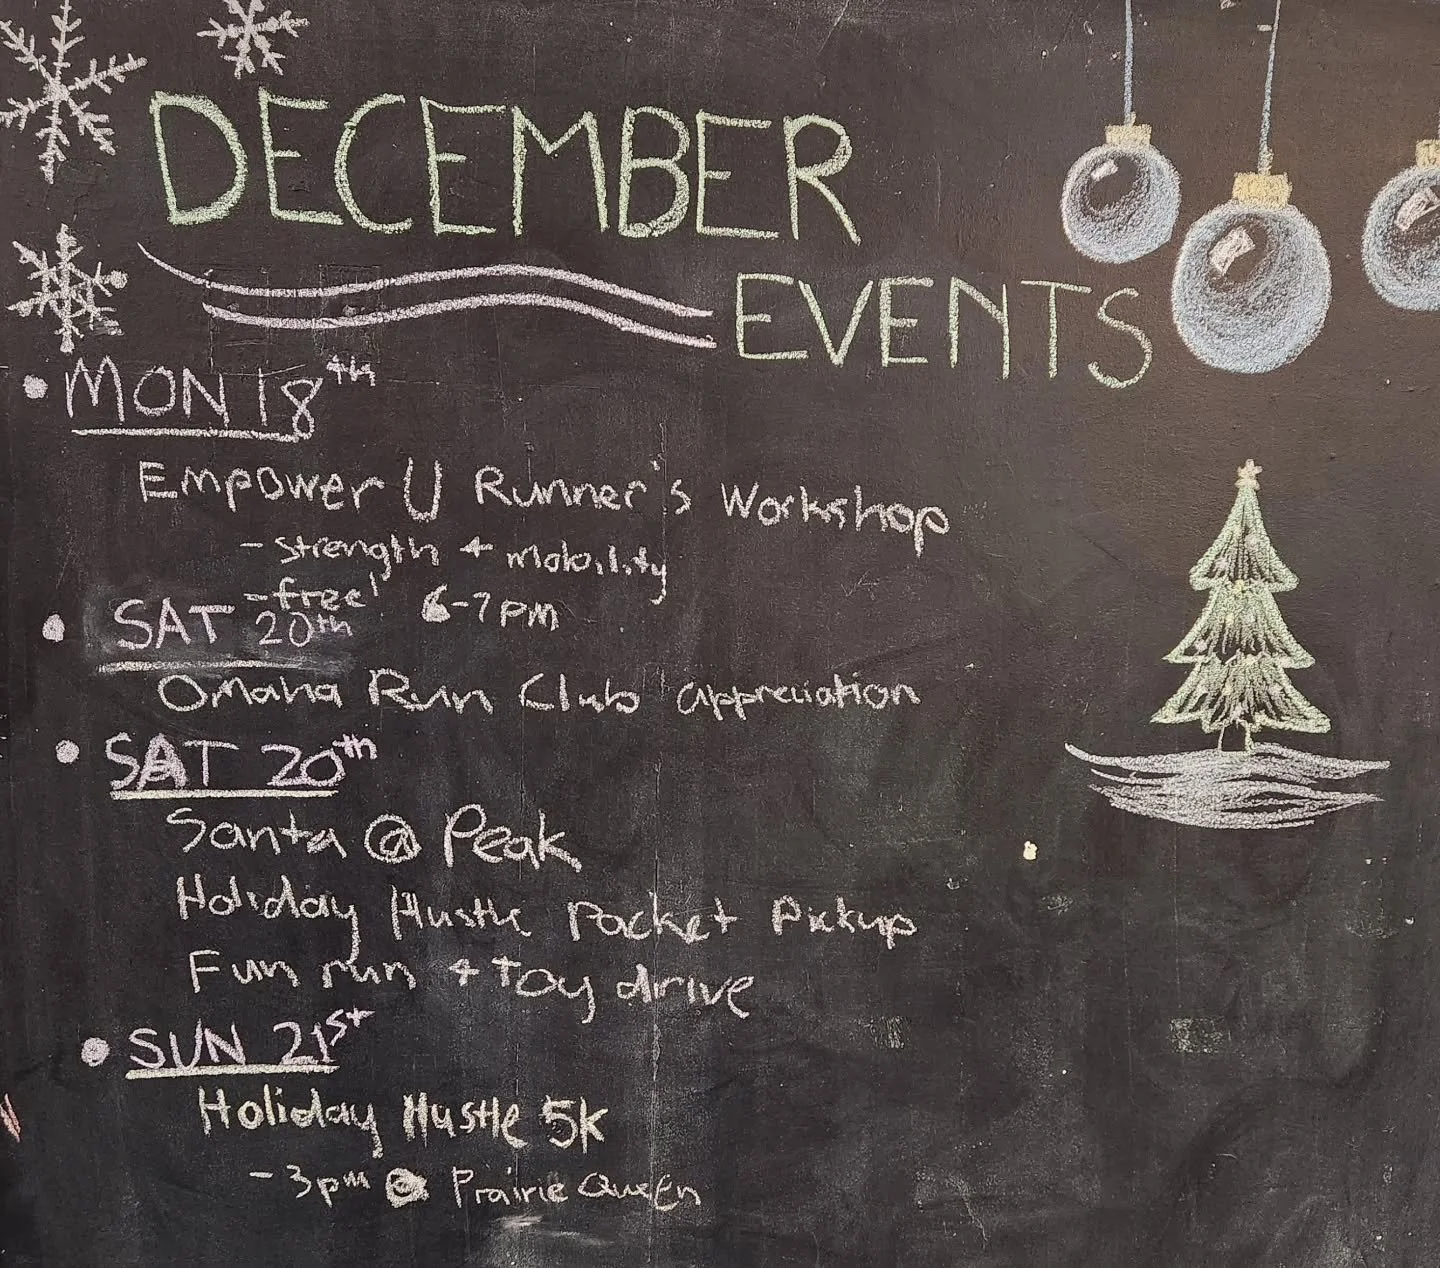 DECEMBER
EVENTS
• MON 18th
Empower U Runner's Workshop
- strength + mobility
- free! 6-7pm
• SAT 20th
Omaha Run Club appreciation
• SAT 20th
Santa @ Peak
Holiday Hustle Packet Pickup
Fun run + toy drive
• SUN 21st
Holiday Hustle 5k
- 3pm @ Prairie Queen